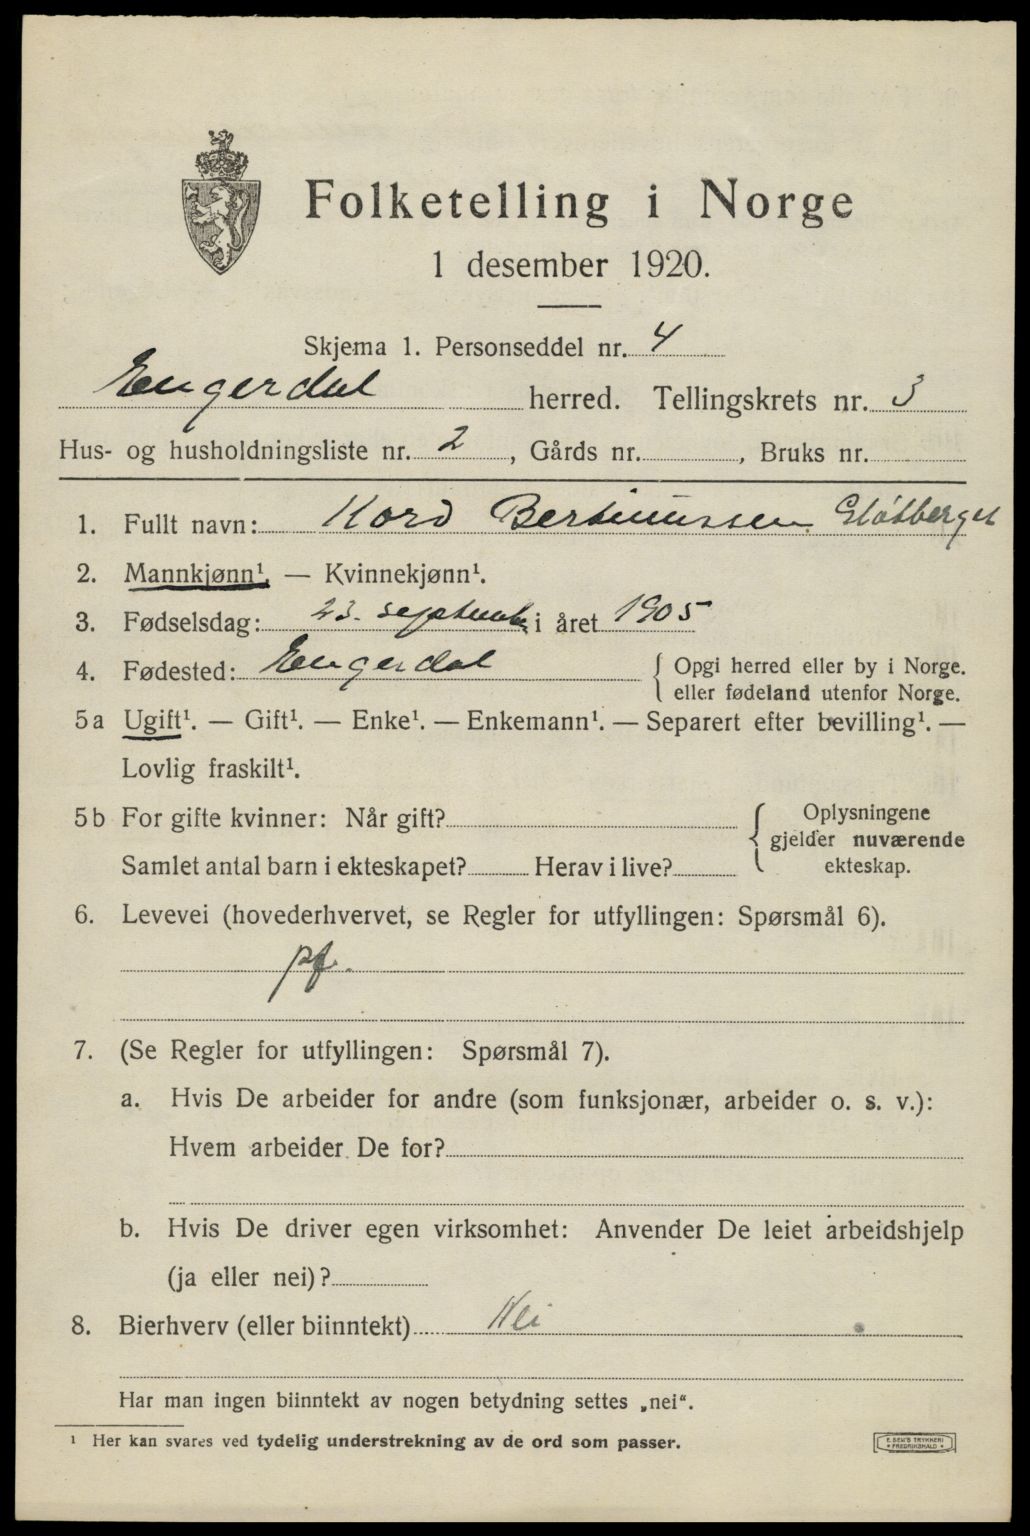 Folketelling i Norge
1 desember 1920.
Skjema 1. Personseddel nr. 4
Engerdal herred. Tellingskrets nr. 3
Hus- og husholdningsliste nr. 2, Gårds nr. , Bruks nr.
1. Fullt navn: Kord Bertinussen Gløtberget
2. Mannkjønn¹. — Kvinnekjønn¹.
3. Fødselsdag: 23. septemb. i året 1905
4. Fødested: Engerdal { Opgi herred eller by i Norge.
eller fødeland utenfor Norge.
5a Ugift¹. — Gift¹. — Enke¹. — Enkemann¹. — Separert efter bevilling¹. —
Lovlig fraskilt¹.
5b For gifte kvinner: Når gift? { Oplysningene
gjelder nuværende
Samlet antal barn i ekteskapet? Herav i live? ekteskap.
6. Levevei (hovederhvervet, se Regler for utfyllingen: Spørsmål 6).
pf.
7. (Se Regler for utfyllingen: Spørsmål 7).
a. Hvis De arbeider for andre (som funksjonær, arbeider o. s. v.):
Hvem arbeider De for?
b. Hvis De driver egen virksomhet: Anvender De leiet arbeidshjelp
(ja eller nei)?
8. Bierhverv (eller biinntekt) Nei
Har man ingen biinntekt av nogen betydning settes „nei“.
¹ Her kan svares ved tydelig understrekning av de ord som passer.
E. SEM'S TRYKKERI
• FREDRIKSHALD •